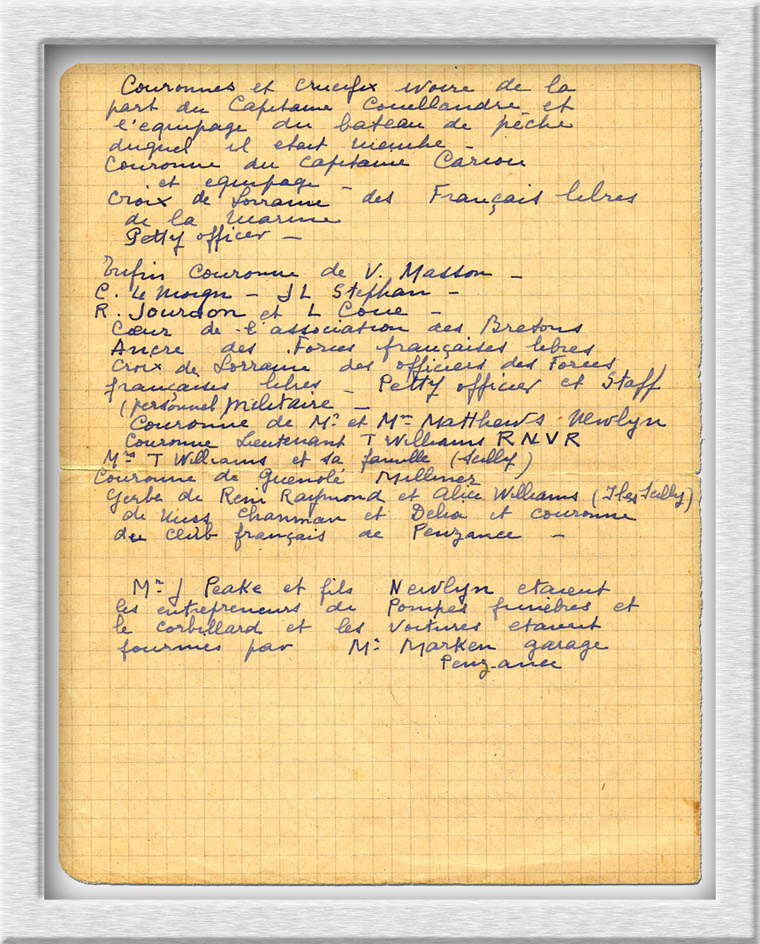 Couronnes et crucifix ivoire de la
part du Capitaine Couellandre et
l'equipage du bateau de pêche
duquel il etait membre -
Couronne du capitaine Cariou
et equipage -
Croix de Lorraine des Français libres
de la marine
Petty officer -
Enfin Couronne de V. Masson -
C. Le Moign - JL Stephan -
R. Jourdon et L Coue -
Cœur de l'association des Bretons
Ancre des Forces françaises libres
Croix de Lorraine des officiers des Forces
françaises libres - Petty officier et Staff
(personnel militaire -
Couronne de Mr et Mme Matthews Newlyn
Couronne Lieutenant T Williams RNVR
Mme T Williams et sa famille (Scilly)
Couronne de Guenolé Milliner
Gerbe de Reni Raymond et Alice Williams (Iles Scilly)
de Miss Chanman et Delia et couronne
du club français de Penzance -
Mr J Peake et fils Newlyn etaient
les entrepreneurs de Pompes funèbres et
le corbillard et les voitures etaient
fournies par Mr Marken garage
Penzance